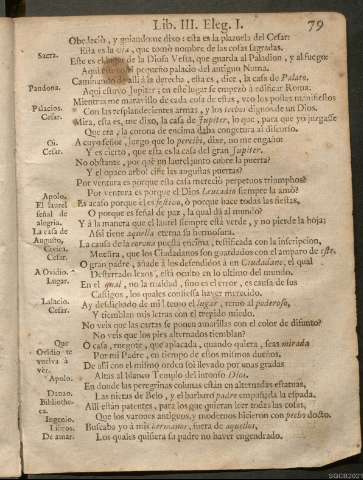 Lib. III. Eleg. I. 79
Obedecila, y guiandome dixo: esta es la plazuela del Cesar:
Esta es la via, que tomò nombre de las cosas sagradas.
Sacra.
Este es el lugar de la Diosa Vesta, que guarda al Paladion, y al fuego:
Aqui estuvo el pequeño palacio del antiguo Numa.
Caminando de alli à la derecha, esta es, dice, la casa de Palate,
Pandona.
Aqui estuvo Jupiter; en este lugar se empezò à edificar Roma.
Mientras me maravillo de cada cosa de estas, veo los postes manifiestos
Palacios.
Con las resplandecientes armas, y los techos dignos de un Dios.
Cesar.
Mira, esta es, me dixo, la casa de Jupiter, lo que, para que yo juzgasse
Que era, la corona de encima daba congetura al discurso.
Oi.
A cuyo señor, luego que lo percibi, dixe, no me engaño:
Cesar.
Y es cierto, que esta es la casa del gran Jupiter.
No obstante, por què un laurel junto cubre la puerta?
Y el opaco arbol ciñe las augustas puertas?
Por ventura es porque esta casa mereciò perpetuos triumphos?
Por ventura es porque el Dios Leucadio siempre la amò?
Apolo.
Es acaso porque el es festiva, ò porque hace todas las fiestas,
El laurel
O porque es señal de paz, la qual dà al mundo?
señal de
Y à la manera que el laurel siempre està verde, y no pierde la hoja;
alegria.
Assi tiene aquella eterna su hermosura.
La casa de
La causa de la corona puesta encima, testificada con la inscripcion,
Augusto.
Muestra, que los Ciudadanos son guardados con el amparo de este.
Civica.
Cesar.
O gran padre, añade à los defendidos à un Ciudadano, el qual
A Ovidio.
Desterrado lexos, està oculto en lo ultimo del mundo.
Lugar.
En el qual, no la maldad, sino es el error, es causa de sus
Castigos, los quales confiessa haver merecido.
Palacio.
Ay desdichado de mi! temo el lugar, temo al poderoso,
Cesar.
Y tiemblan mis letras con el trepido miedo.
No veis que las cartas se ponen amarillas con el color de difunto?
No veis que los pies alternados tiemblan?
Que
O casa, ruegote, que aplacada, quando quiera, seas mirada
Ovidio te
Por mi Padre, en tiempo de estos mismos dueños.
vuelva à
ver.
De alli con el mismo orden foi llevado por unas gradas
Apolo.
Altas al blanco Templo del intonso Dios,
En donde las peregrinas colunas estàn en alternadas estatuas,
Danao.
Las nietas de Belo, y el barbaro padre empuñada la espada.
Bibliotheca.
Alli estàn patentes, para los que quieran leer todas las cosas,
Ingenio.
Que los varones antiguos, y modernos hicieron con pecho docto.
Libros.
Buscaba yo à mis hermanos, fuera de aquellos,
De amar.
Los quales quisiera su padre no haver engendrado.